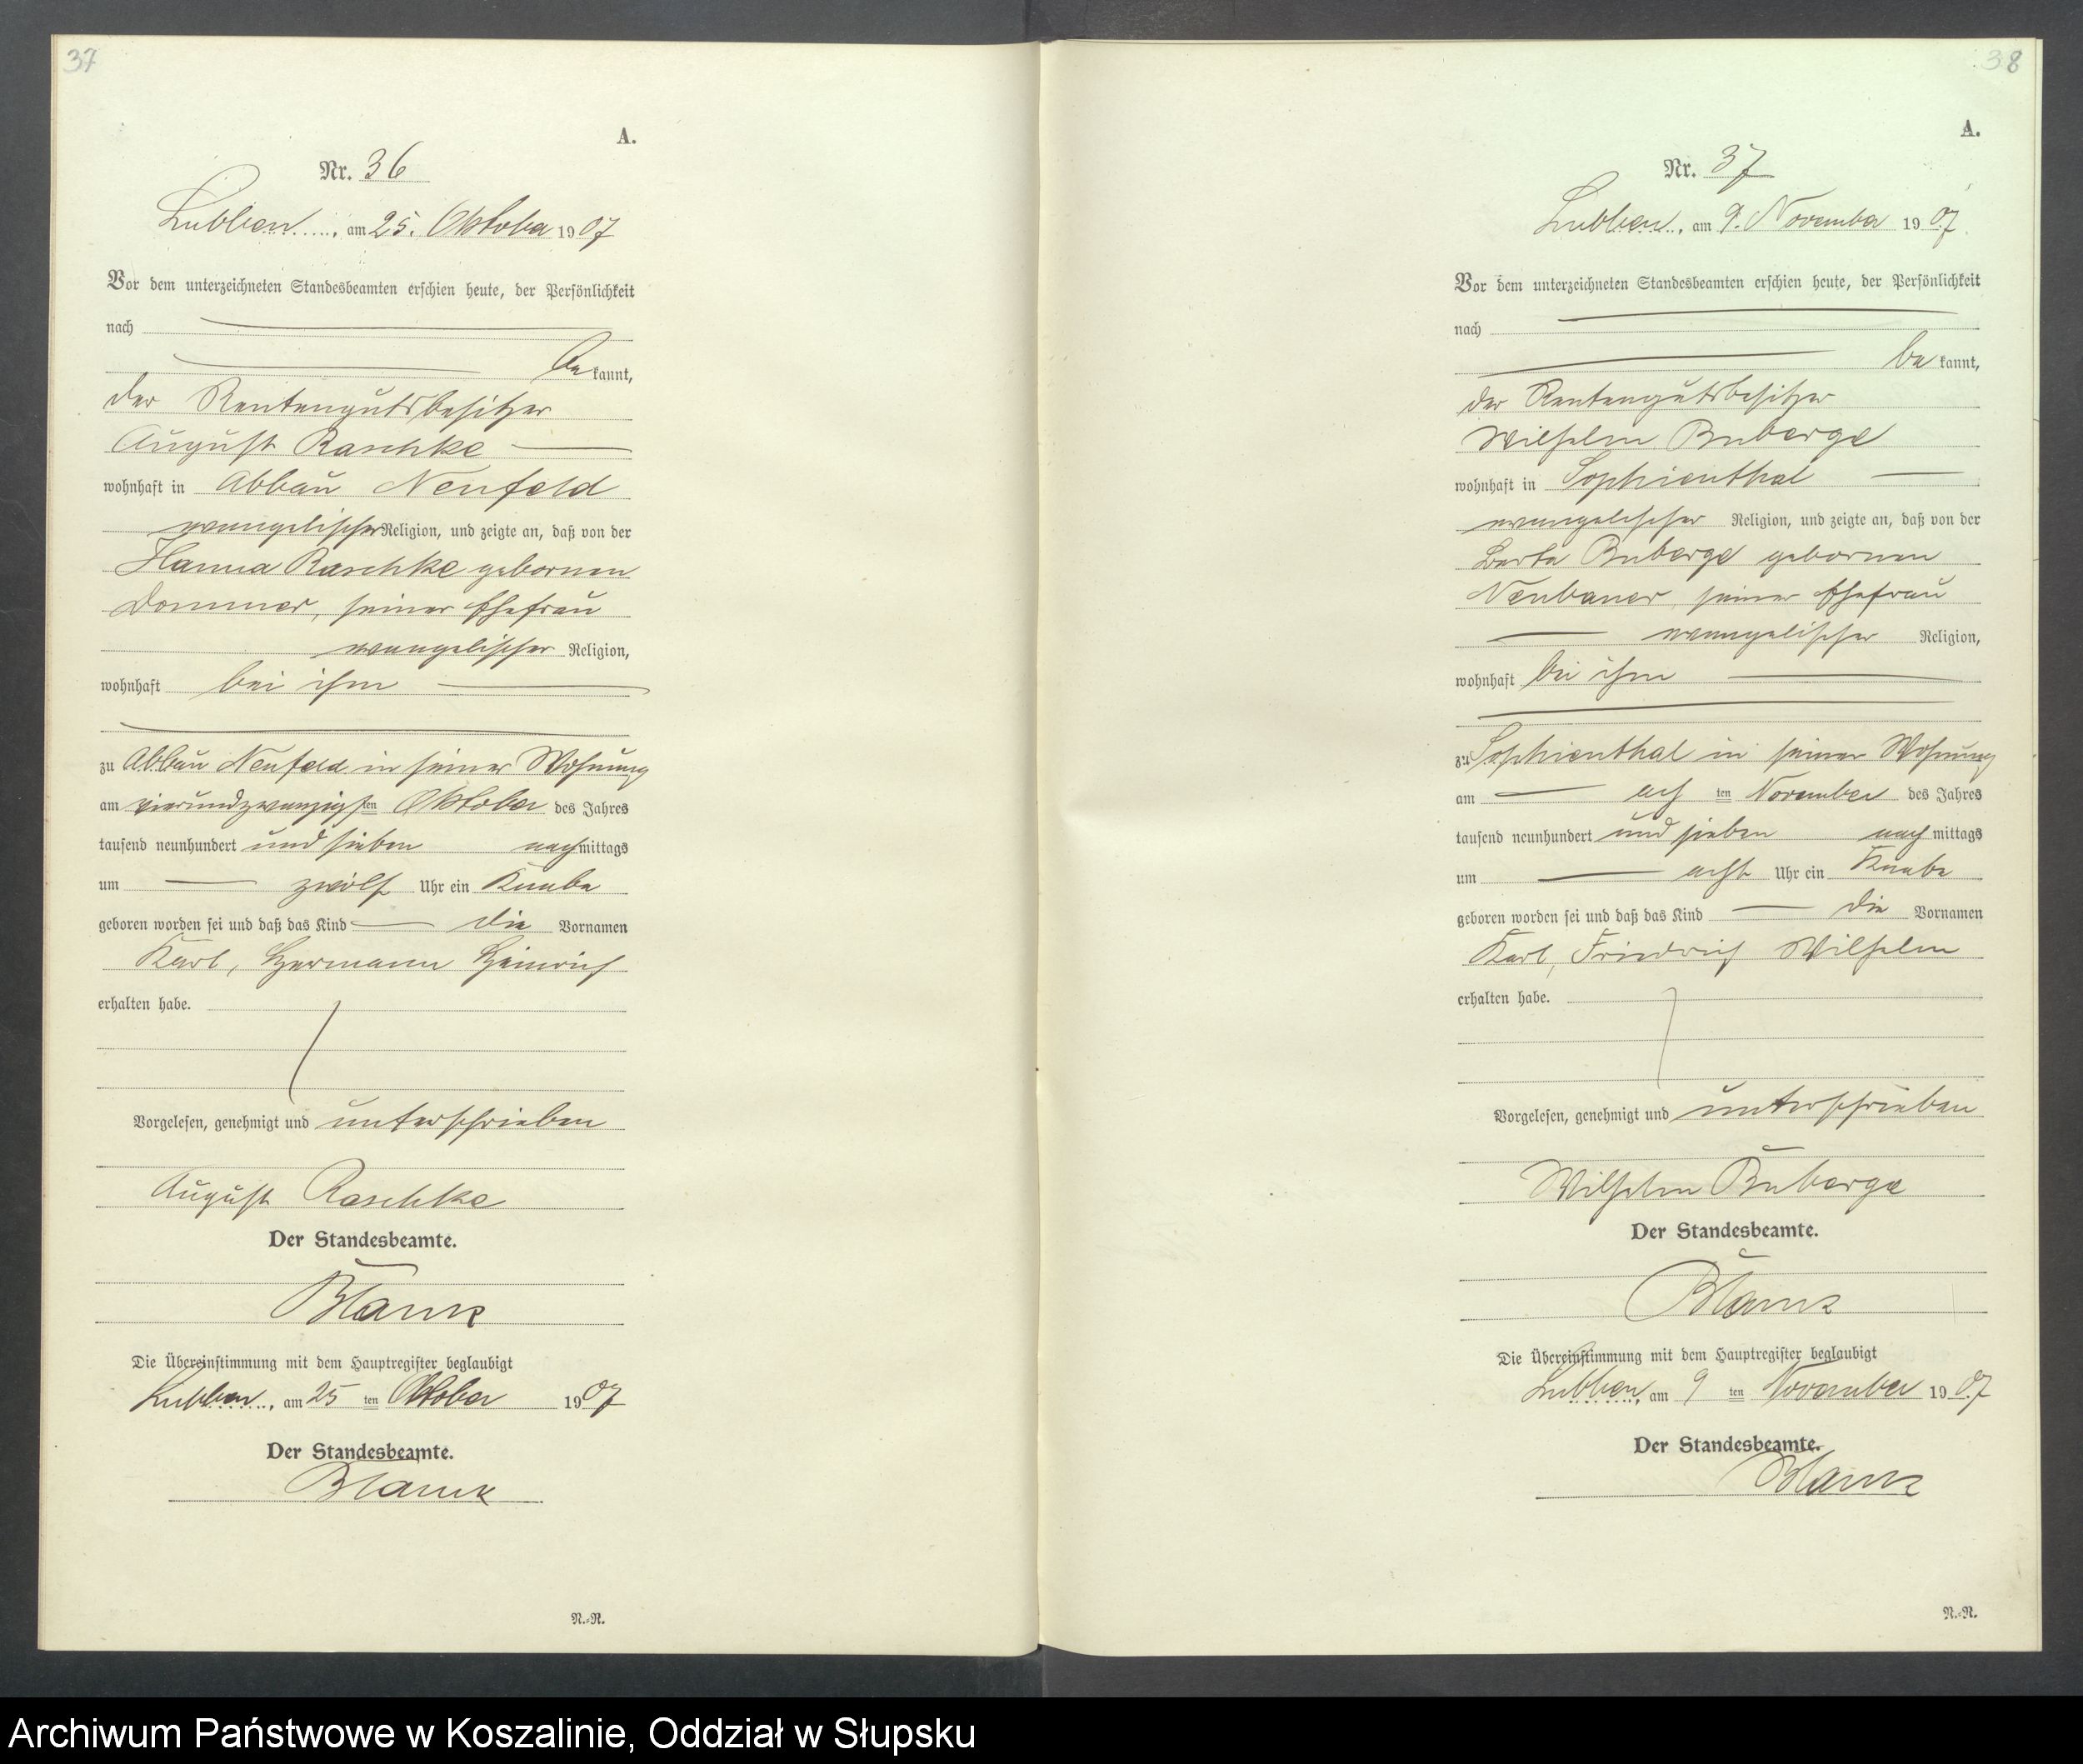 37
A.
Nr. 36
Lubben, am 25. Oktober 1907
Vor dem unterzeichneten Standesbeamten erschien heute, der Persönlichkeit
nach
be kannt,
der Rentengutsbesitzer
August Raschke
wohnhaft in Abbau Neufeld
evangelischer Religion, und zeigte an, daß von der
Hanna Raschke gebornen
Dommer, seiner Ehefrau
evangelischer Religion,
wohnhaft bei ihm
zu Abbau Neufeld in seiner Wohnung
am vierundzwanzigsten Oktober des Jahres
tausend neunhundert und sieben nachmittags
um zwölf Uhr ein Knabe
geboren worden sei und daß das Kind die Vornamen
Karl, Hermann Heinrich
erhalten habe.
Vorgelesen, genehmigt und unterschrieben
August Raschke
Der Standesbeamte.
Blank
Die Übereinstimmung mit dem Hauptregister beglaubigt
Lubben, am 25 ten Oktober 1907
Der Standesbeamte.
Blank
N.-R.
38
A.
Nr. 37
Lubben, am 9. November 1907
Vor dem unterzeichneten Standesbeamten erschien heute, der Persönlichkeit
nach
be kannt,
der Rentengutsbesitzer
Wilhelm Buberge
wohnhaft in Sophienthal
evangelischer Religion, und zeigte an, daß von der
Berta Buberge gebornen
Neubauer, seiner Ehefrau
evangelischer Religion,
wohnhaft bei ihm
zu Sophienthal in seiner Wohnung
am ach ten November des Jahres
tausend neunhundert und sieben nachmittags
um acht Uhr ein Knabe
geboren worden sei und daß das Kind die Vornamen
Karl, Friedrich Wilhelm
erhalten habe.
Vorgelesen, genehmigt und unterschrieben
Wilhelm Buberge
Der Standesbeamte.
Blank
Die Übereinstimmung mit dem Hauptregister beglaubigt
Lubben, am 9 ten November 1907
Der Standesbeamte.
Blank
N.-R.
Archiwum Państwowe w Koszalinie, Oddział w Słupsku